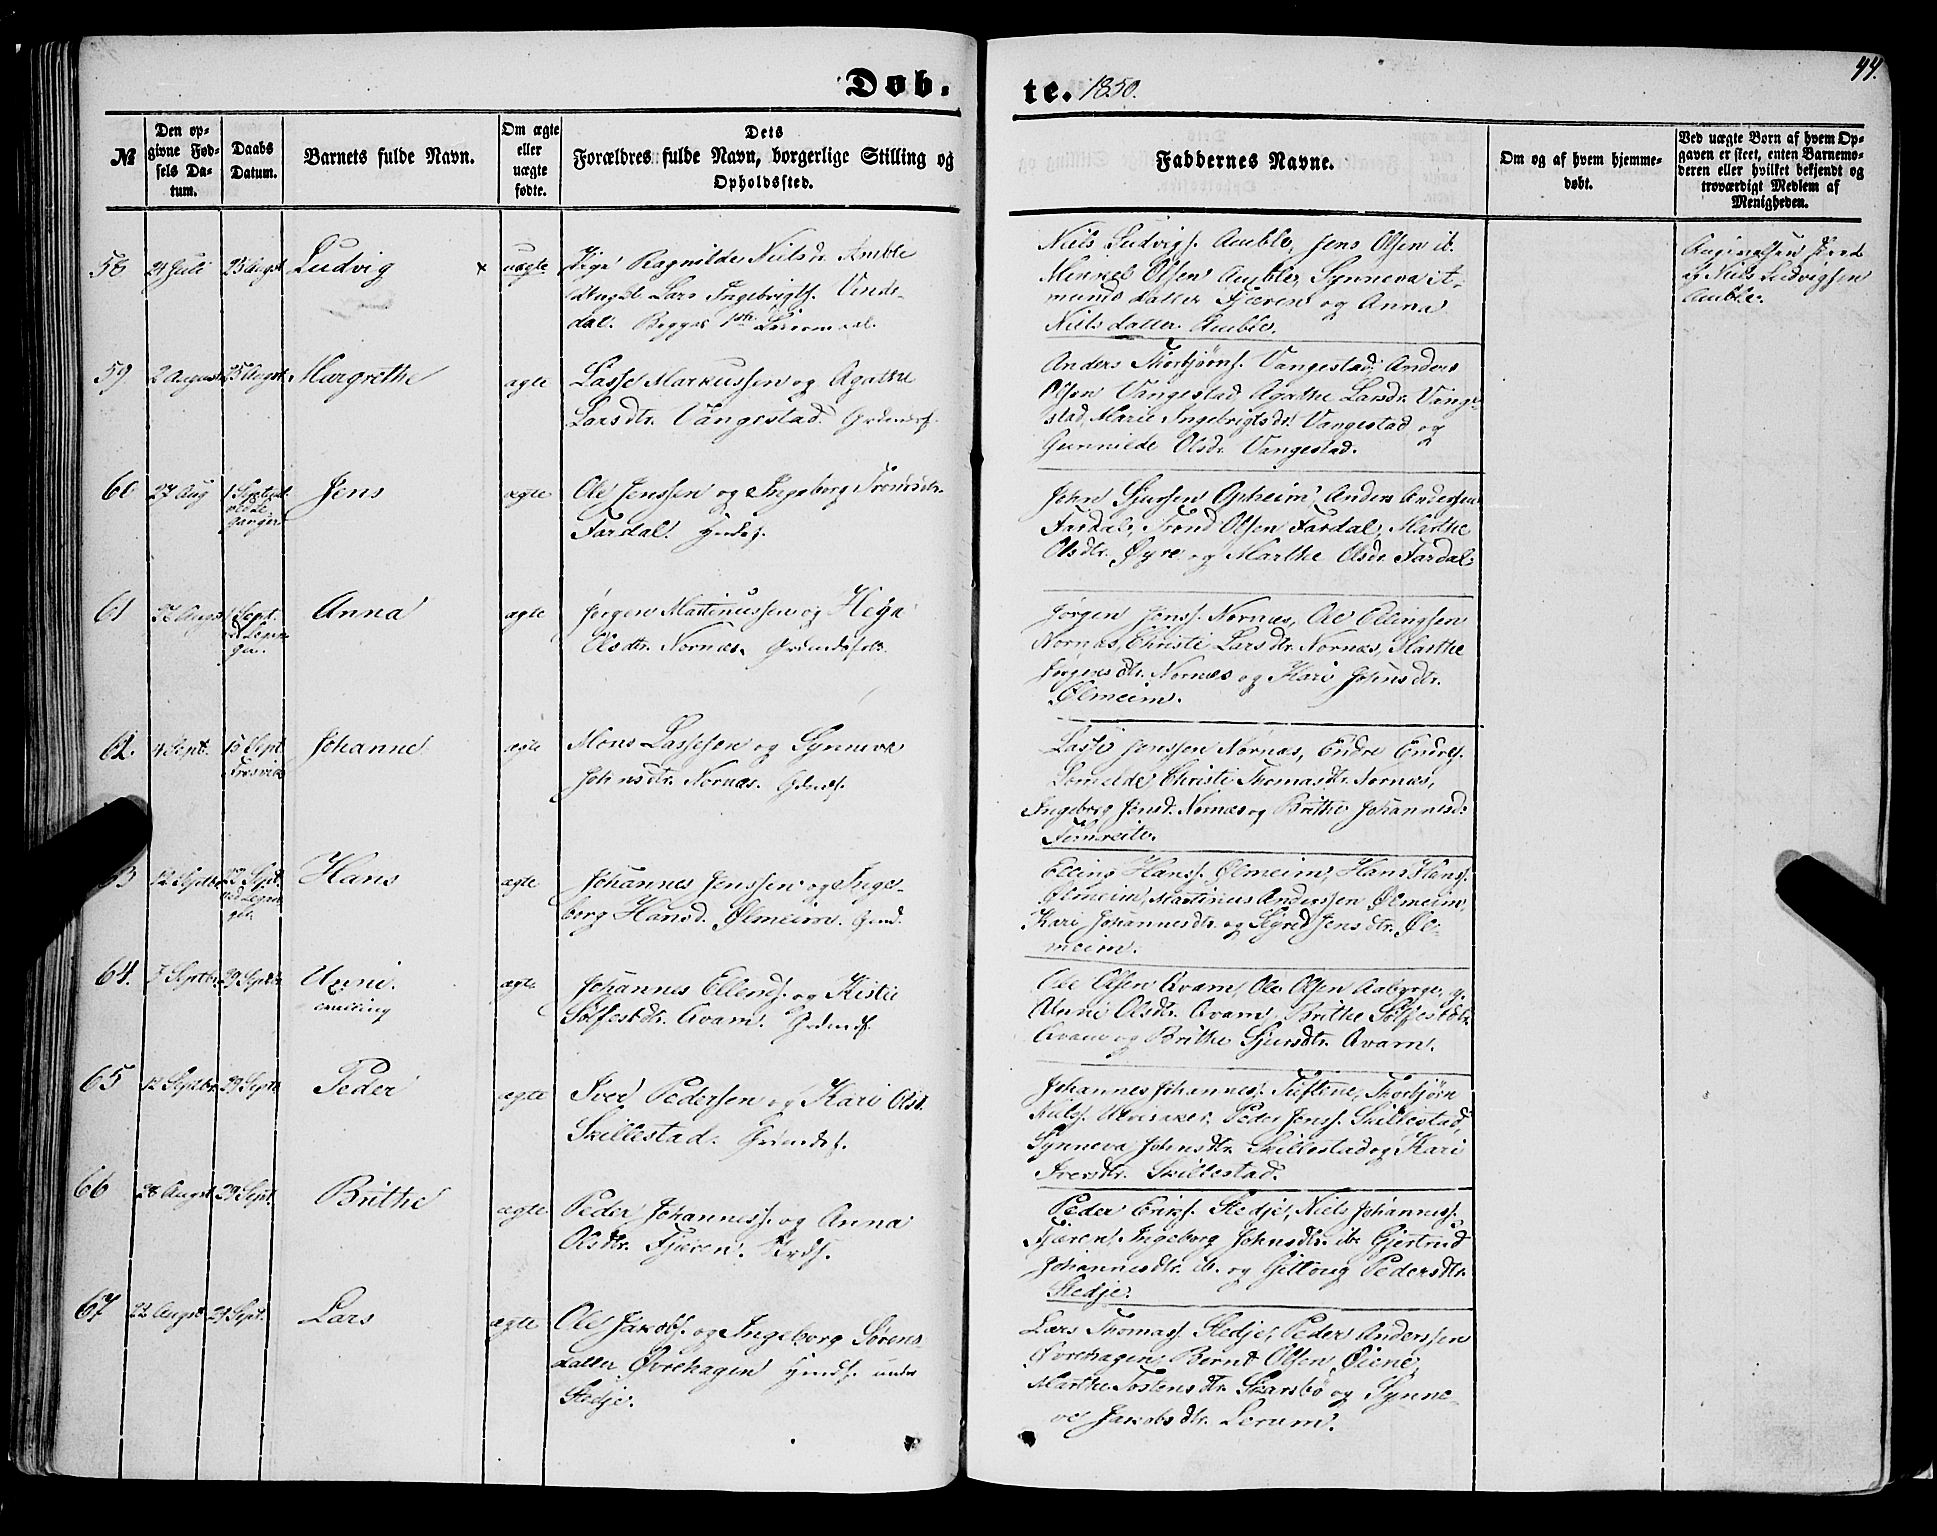 Døb- te. 1850.
44.
№
Den opgivne Fødsels Datum.
Daabs Datum.
Barnets fulde Navn.
Om ægte eller uægte fødte.
Dets Forældres fulde Navn, borgerlige Stilling og Opholdssted.
Faddernes Navne.
Om og af hvem hjemmedøbt.
Ved uægte Børn af hvem Opgaven er skeet, enten Barnemoderen eller hvilket bekjendt og troværdigt Medlem af Menigheden.
58 21 Juli 25 Augst Ludvig x uægte
Pige Ragnilde Nielsd. Amble
Ungk. Lars Ingebrigts. Vinde-
dal. Begges 1ste Leiermaal.
Niels Ludvigs. Amble, Jens Olsen ib.
Mikkel Olsen Amble, Synneva A-
munds datter Fjæren og Anna
Niels datter Amble.
og Niels Ludvigsen
Amble.
59 2 August 25 Augst Margrethe ægte
Lasse Markussen og Agathe
Larsdtr. Vangestad. Grdmdsf.
Anders Thorbjørns. Vangestad, Anders
Olsen Vangestad, Agathe Larsdr. Vange-
stad, Marie Ingebrigtsdr. Vangestad og
Gunnilde Olsdr. Vangestad.
60 27 Aug 1 Septbr. Jens ægte
Ole Jenssen og Ingeborg Trondsdtr.
Fardal. Hmdsf.
John Sjursen Opheim, Anders Andersen
Fardal, Trond Olsen Fardal, Marthe
Olsdtr. Øyre og Marthe Olsdr. Fardal.
61 Augst 1 Sept. Anna ægte
Jørgen Martinussen og Hega
Olsdtr. Nornæs. Grdmdsfolk.
Jørgen Jenss. Nornæs, Ole Ellingsen
Nornæs, Christi Larsdtr. Nornæs, Marthe
Jørgensdtr. Nornæs og Kari Johnsdtr.
Ølmeim.
62. 4 Sept. 15 Sept. Fresvik Johanne ægte
Mons Lassesen og Synneve
Johnsdtr. Nornæs. Grdmdsf.
Lasse Jenssen Nornæs, Endre Endres.
Lomelde, Christi Thomasdtr. Nornæs,
Ingeborg Jensd. Nornæs og Brithe Johannesd.
Fimreite.
63 12 Septbr Hans ægte
Johannes Jenssen og Inge-
borg Hansd. Ølmeim. Grmd.
Elling Hanss. Ølmeim, Hans Hanss.
Ølmeim, Martinus Anderssen Ølmeim,
Kari Johannesdtr. og Sigred Jensdtr. Øl-
meim.
64. 7 Septbr. 29 Septbr Unni ægte
Johannes Ellends. og Kistie
Sølfestdtr. Qvam. Grdmdsf.
Ole Olsen Qvam, Ole Olsen Aaberge,
Unni Olsdtr. Qvam, Brithe Sølfestdtr.
Qvam og Brithe Sjursdtr. Qvam.
65 12 Septbr. 29 Septbr Peder ægte
Iver Pedersen og Kari Olsd.
Skillestad. Grdmdsf.
Johannes Johanness. Tuftene, Thorbjørn
Niels. Alvsaker, Peder Jenss. Skillestad,
Synneva Johnsdtr. Skillestad og Kari
Iversdtr. Skillestad.
66 28 Augst 29 Sept. Brithe ægte
Peder Johanness. og Anna
Olsdtr. Fjæren.
Peder Eriks. Stedje, Niels Johanness.
Fjæren, Ingeborg Johnsdtr. ib. Gjertrud
Johannesdtr. ib. og Gitloug Pedersdtr.
Stedje.
67 22 Augst 29 Sept. Lars ægte
Ole Jakobs. og Ingeborg Sørens
datter Øvrehagen Hmdsf. under
Stedje.
Lars Thomass. Stedje, Peder Anderssen
Øvrehagen, Bernt Olsen Øiene,
Marthe Tostensdtr. Skarsbø og Synne-
ve Jakobsdtr. Lerum.